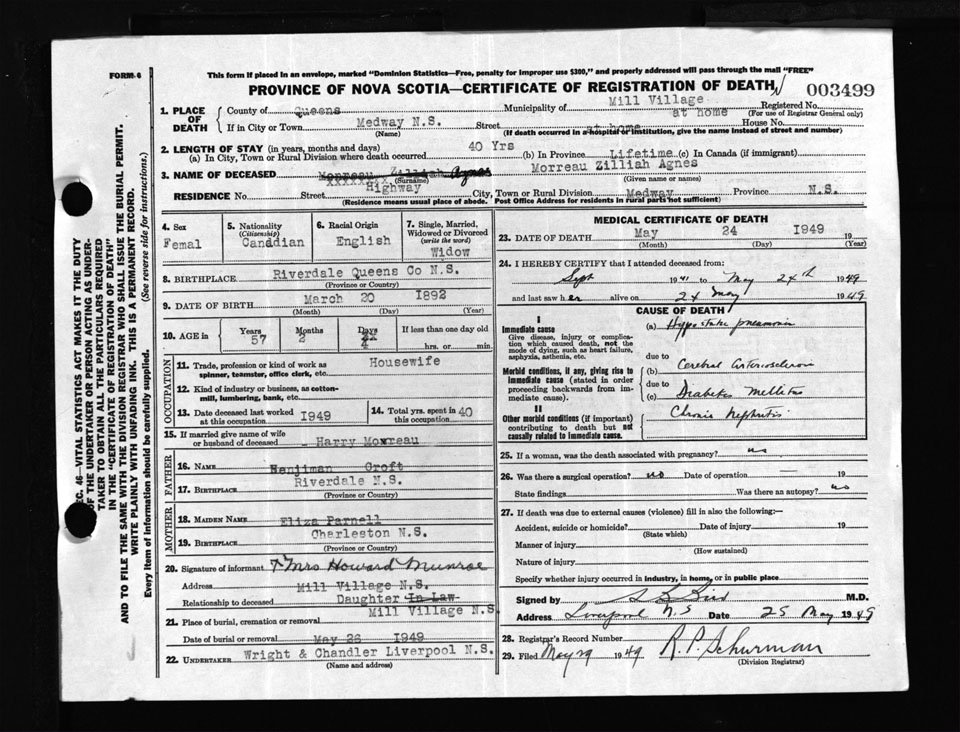 FORM-6
This form if placed in an envelope, marked "Dominion Statistics—Free, penalty for improper use $300," and properly addressed will pass through the mail "FREE"
PROVINCE OF NOVA SCOTIA—CERTIFICATE OF REGISTRATION OF DEATH
003499
1. PLACE OF DEATH
County of Queens Municipality of Mill Village Registered No.
(For use of Registrar General only)
If in City or Town Medway N.S. Street at home House No.
(Name) (If death occurred in a hospital or institution, give the name instead of street and number)
at home
2. LENGTH OF STAY (in years, months and days)
(a) In City, Town or Rural Division where death occurred 40 Yrs (b) In Province Lifetime (c) In Canada (if immigrant)
3. NAME OF DECEASED Morreau Zilliah Agnes Morreau Zilliah Agnes
(Surname) (Given name or names)
RESIDENCE No. Street Highway City, Town or Rural Division Medway Province N.S.
(Residence means usual place of abode. Post Office Address for residents in rural parts not sufficient)
4. Sex
Femal
5. Nationality
(Citizenship)
Canddian
6. Racial Origin
English
7. Single, Married, Widowed or Divorced
(write the word)
Widow
8. BIRTHPLACE Riverdale Queens Co N.S.
(Province or Country)
9. DATE OF BIRTH March 20 1892
(Month) (Day) (Year)
10. AGE in Years Months Days If less than one day old
57 2 hrs. or min.
OCCUPATION
11. Trade, profession or kind of work as spinner, teamster, office clerk, etc. Housewife
12. Kind of industry or business, as cotton-mill, lumbering, bank, etc.
13. Date deceased last worked at this occupation 1949
14. Total yrs. spent in this occupation 40
15. If married give name of wife or husband of deceased Harry Morreau
FATHER
16. NAME Henjiman Croft
17. BIRTHPLACE Riverdale N.S.
MOTHER
18. MAIDEN NAME Eliza Parnell
19. BIRTHPLACE Charleston N.S.
(Province or Country)
20. Signature of informant Mrs Howard Munroe
Address Mill Village N.S.
Relationship to deceased Daughter In Law
21. Place of burial, cremation or removal Mill Village N.S.
Date of burial or removal May 26 1949
22. UNDERTAKER Wright & Chandler Liverpool N.S.
(Name and address)
MEDICAL CERTIFICATE OF DEATH
23. DATE OF DEATH May 24 1949
(Month) (Day) (Year)
24. I HEREBY CERTIFY that I attended deceased from:
Sept 1941 to May 24th 1949
and last saw her alive on 24 May 1949
CAUSE OF DEATH
I
Immediate cause
Give disease, injury or complication which caused death, not the mode of dying, such as heart failure, asphyxia, asthenia, etc.
(a) Hypostatic pneumonia
due to
Morbid conditions, if any, giving rise to immediate cause (stated in order proceeding backwards from immediate cause).
(b) Cerebral Arteriosclerosis
due to
(c) Diabetes Mellitus
II
Other morbid conditions (if important) contributing to death but not causally related to immediate cause.
Chronic Nephritis
25. If a woman, was the death associated with pregnancy? no
26. Was there a surgical operation? no Date of operation 19
State findings Was there an autopsy? no
27. If death was due to external causes (violence) fill in also the following:—
Accident, suicide or homicide? Date of injury 19
(State which)
Manner of injury
(How sustained)
Nature of injury
Specify whether injury occurred in industry, in home, or in public place
Signed by M.D.
Address Liverpool N.S Date 25 May 1949
28. Registrar's Record Number
29. Filed May 29 1949 R. P. Schurman
(Division Registrar)
SEC. 46—VITAL STATISTICS ACT MAKES IT THE DUTY
OF THE UNDERTAKER OR PERSON ACTING AS UNDER-
TAKER TO OBTAIN ALL THE PARTICULARS REQUIRED
IN THE "CERTIFICATE OF REGISTRATION OF DEATH"
AND TO FILE THE SAME WITH THE DIVISION REGISTRAR WHO SHALL ISSUE THE BURIAL PERMIT.
WRITE PLAINLY WITH UNFADING INK. THIS IS A PERMANENT RECORD.
Every item of information should be carefully supplied. (See reverse side for instructions.)